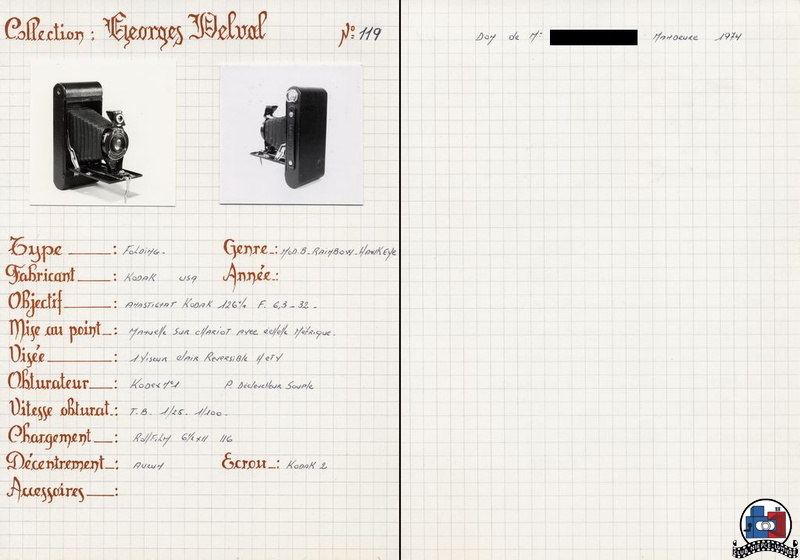 Collection : Georges Delval Nº: 119
Type : FOLDING. Genre : MOD.B. RAINBOW. HAWKEYE
Fabricant : KODAK USA Année :
Objectif : ANASTIGMAT KODAK 126% F. 6,3 - 32 -
Mise au point : MANUELLE SUR CHARIOT AVEC ECHELLE MÉTRIQUE.
Visée : 1 VISEUR CLAIR REVERSIBLE H et V
Obturateur : KODEX Nº1 P. Déclencheur Souple
Vitesse obturat. : T.B. 1/25. 1/100.
Chargement : Rollfilm 6½x11 116
Décentrement : AUCUN Ecrou : KODAK 2
Accessoires :
DON de Mr MANDEURE 1974